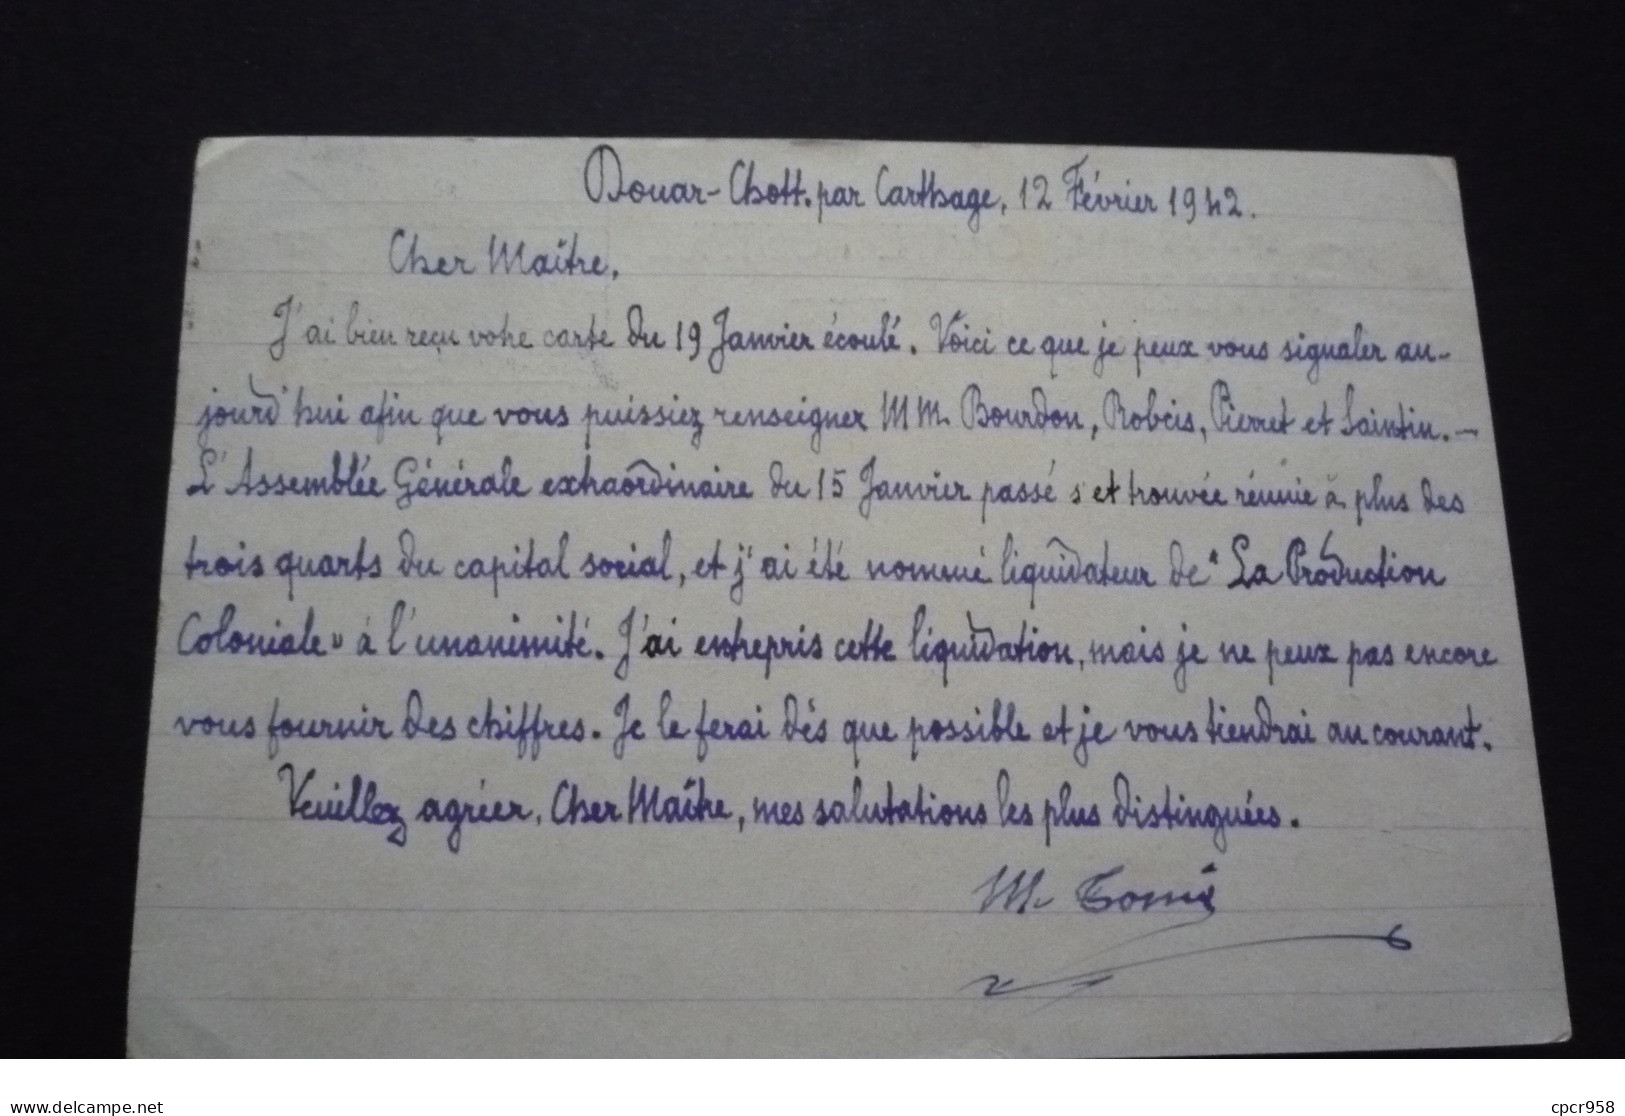 Douar-Chott. par Carthage, 12 Février 1942.
Cher Maître,
J'ai bien reçu votre carte du 19 Janvier écoulé. Voici ce que je peux vous signaler au-
jourd'hui afin que vous puissiez renseigner MM. Bourdon, Robcis, Pierret et Saintin. —
L'Assemblée Générale extraordinaire du 15 Janvier passé s'et trouvée réunie à plus des
trois quarts du capital social, et j'ai été nommé liquidateur de "La Production
Coloniale" à l'unanimité. J'ai entrepris cette liquidation, mais je ne peux pas encore
vous fournir des chiffres. Je le ferai dès que possible et je vous tiendrai au courant.
Veuillez agréer, Cher Maître, mes salutations les plus distinguées.
M.
delcampe.net
cpcr958